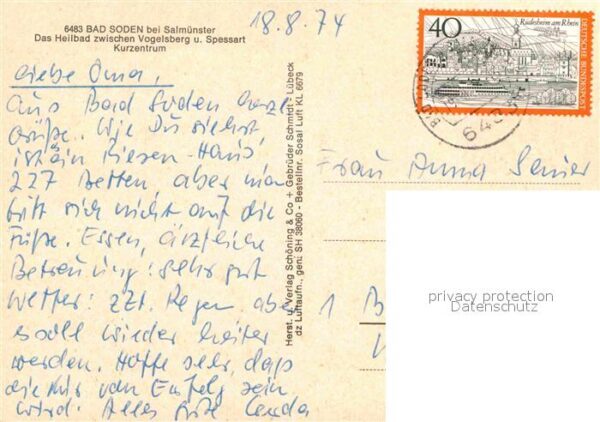 6483 BAD SODEN bei Salmünster
Das Heilbad zwischen Vogelsberg u. Spessart
Kurzentrum
18.8.74
Liebe Oma,
Aus Bad Soden herzl.
Grüße. Wie Du siehst,
ist ein Riesen-Haus,
227 Betten, aber man
tritt sich nicht auf die
Füße. Essen, ärztliche
Betreuung: sehr gut
Wetter: zZt. Regen aber
es soll wieder heiter
werden. Hoffe sehr, daß
die Kur von Erfolg sein
wird. Alles Gute
Herst. u. Verlag Schöning & Co + Gebrüder Schmidt - Lübeck
dz Luftaufn., gen. SH 38060 - Bestellnr. Sosal Luft KL 6679
40
Rüdesheim am Rhein
DEUTSCHE BUNDESPOST
Frau Anna
1 B
privacy protection
Datenschutz